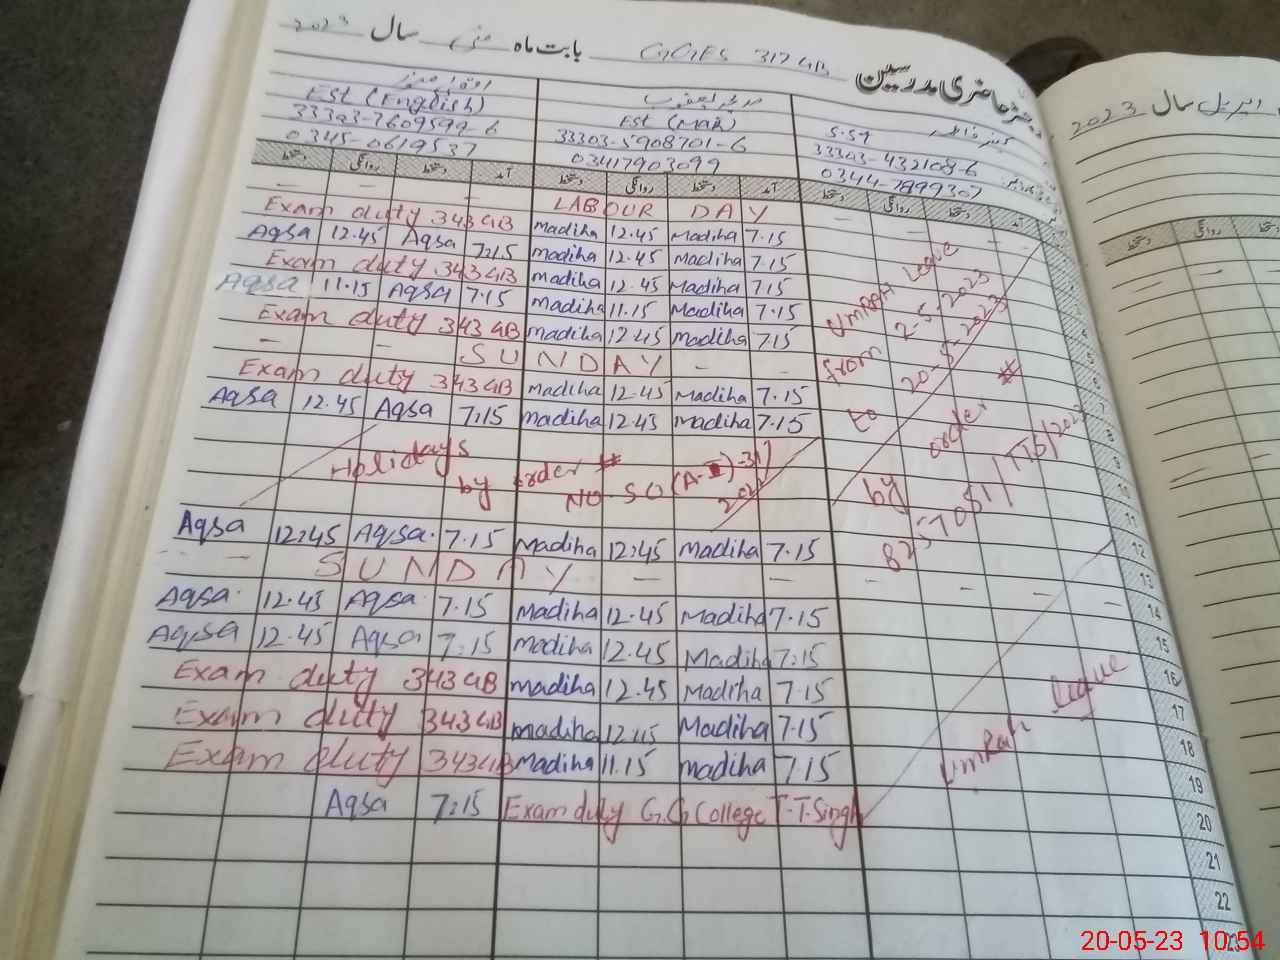 رجسٹر حاضری مدرسین GGES 317 GB بابت ماہ مئی سال 2023
اپریل سال 2023
Est (English)
33303-7609599-6
0345-0619537
مدیحہ یعقوب
Est (Math)
33303-5908701-6
03417903099
کنیز فاطمہ
S.St
33303-432108-6
0344-7899307
آمد دستخط روانگی دستخط آمد دستخط روانگی دستخط آمد دستخط روانگی دستخط
روانگی دستخط
— — — LABOUR DAY — — — —
Exam duty 343 GB Madiha 12.45 Madiha 7.15
Aqsa 12.45 Aqsa 7:15 Madiha 12.45 Madiha 7.15
Exam duty 343 GB Madiha 12.45 Madiha 7.15
Aqsa 11.15 Aqsa 7.15 Madiha 11.15 Madiha 7.15
Exam duty 343 GB Madiha 12.45 Madiha 7.15
— — SUNDAY — —
Exam duty 343 GB Madiha 12.45 Madiha 7.15
Aqsa 12.45 Aqsa 7:15 Madiha 12.45 Madiha 7.15
Holidays
by order #
NO SO (A-II)-317
UmRah Leave
from 2-5-2023
to 20-5-2023
by order #
Aqsa 12:45 Aqsa. 7.15 Madiha 12:45 Madiha 7.15
— — SUNDAY — — — — — —
Aqsa. 12.45 Aqsa. 7.15 Madiha 12.45 Madiha 7.15
Aqsa 12.45 Aqsa 7:15 Madiha 12.45 Madiha 7:15
Exam duty 343 GB Madiha 12.45 Madiha 7.15
Exam duty 343 GB Madiha 12.45 Madiha 7.15
Exam duty 343 GB Madiha 11.15 Madiha 7.15
Aqsa 7:15 Exam duty G.G College T.T.Singh
UmRah leave
4
5
6
7
8
9
10
11
12
13
14
15
16
17
18
19
20
21
22
23
20-05-23 10:54